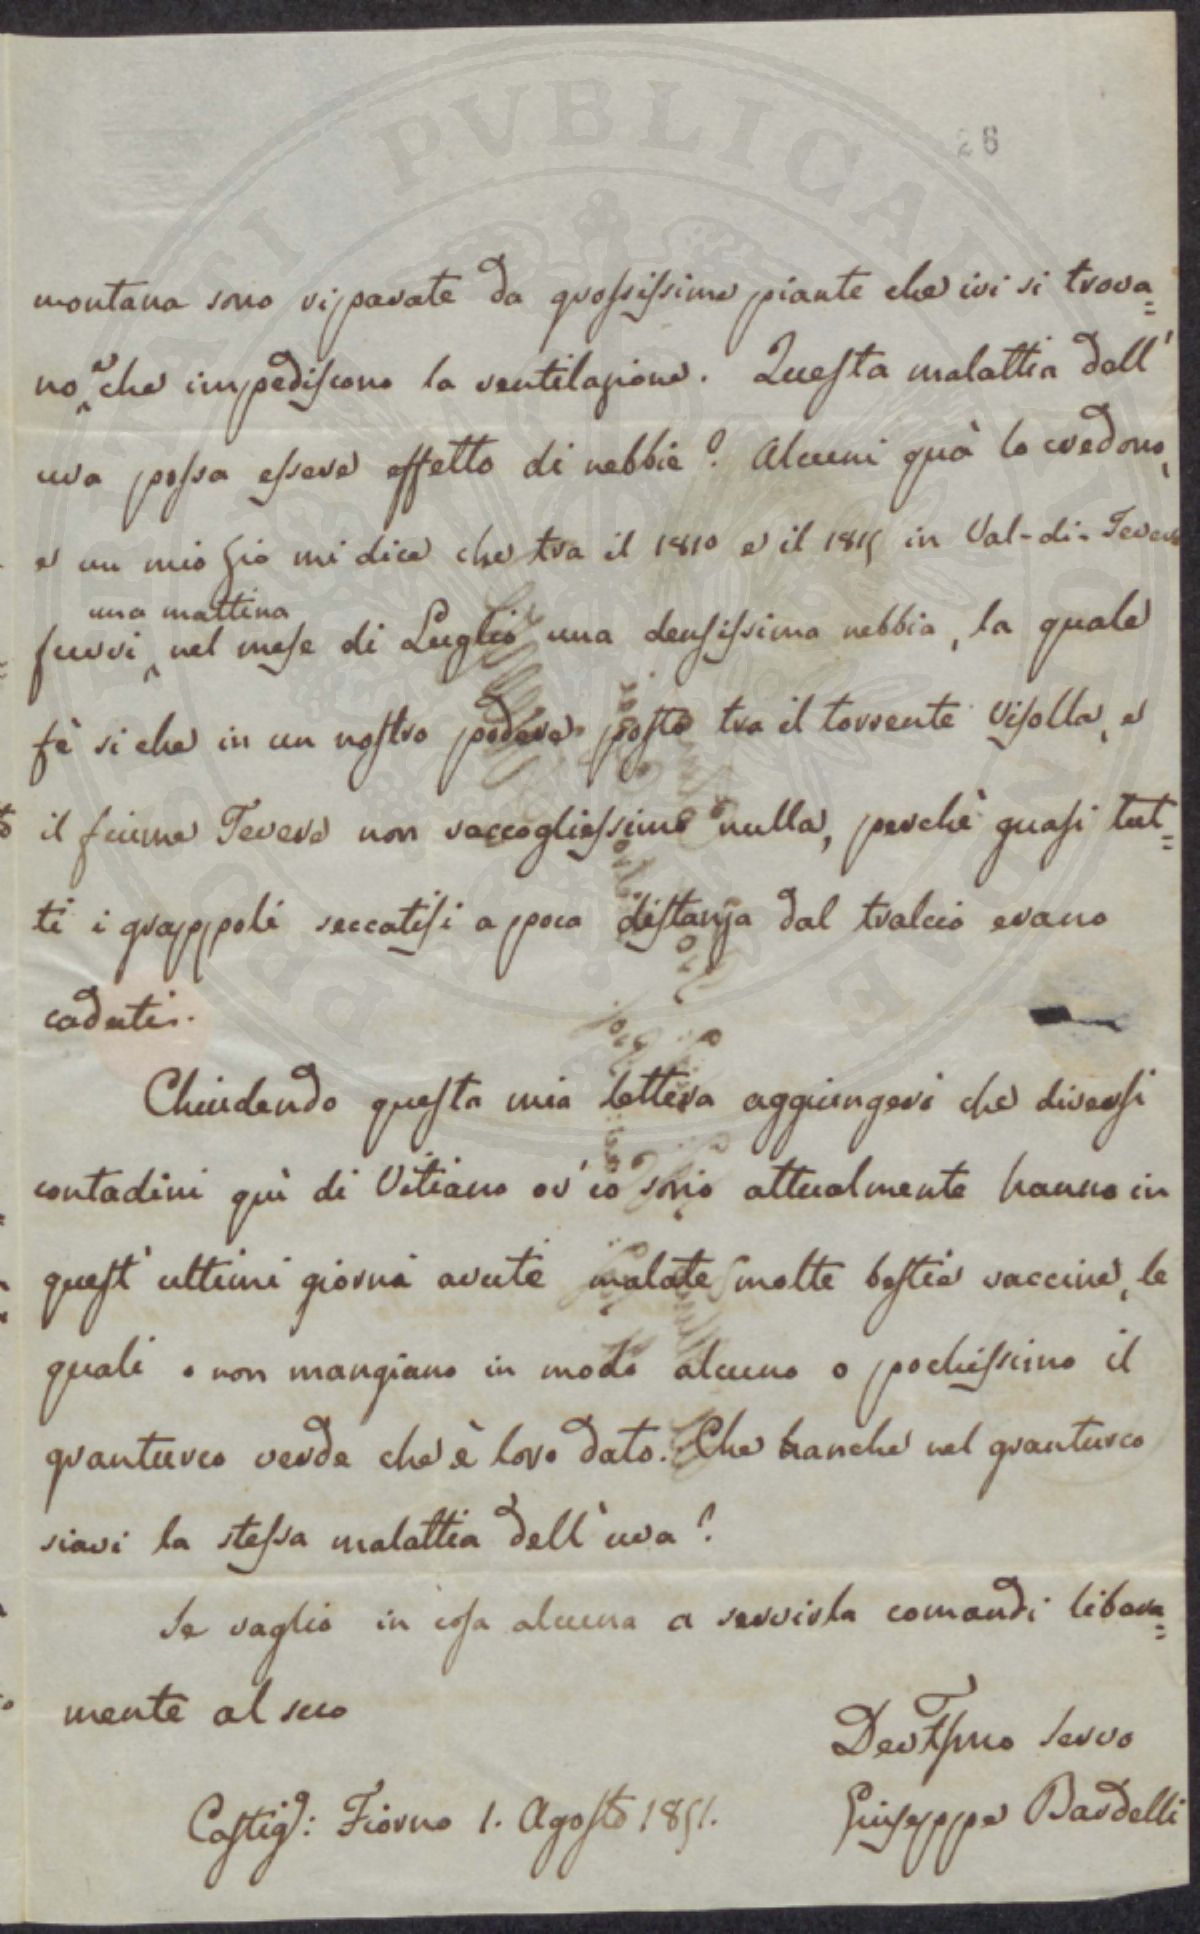 26
montana sono riparate da grossissime piante che ivi si trova=
no e che impediscono la ventilazione. Questa malattia dell'
uva possa essere effetto di nebbie? Alcuni quà lo credono,
e un mio Zio mi dice che tra il 1810 e il 1815 in Val-di-Tevere
una mattina
fuvvi nel mese di Luglio una densissima nebbia, la quale
fè si che in un nostro podere posto tra il torrente Visolla, e
il fiume Tevere non raccogliessimo nulla, perchè quasi tut=
ti i grappoli seccatisi a poca distanza dal tralcio erano
caduti.
Chiudendo questa mia lettera aggiungerò che diversi
contadini quì di Vitiano ov'io sono attualmente hanno in
quest'ultimi giorni avute malate molte bestie vaccine, le
quali o non mangiano in modo alcuno o pochissimo il
granturco verde che è loro dato. Che anche nel granturco
siavi la stessa malattia dell'uva?
Se vaglio in cosa alcuna a servirla comandi libera=
mente al suo
Devmo Servo
Castigl: Fiorno 1. Agosto 1851.
Giuseppe Bardelli
PROPRIETASI PVBLICAE